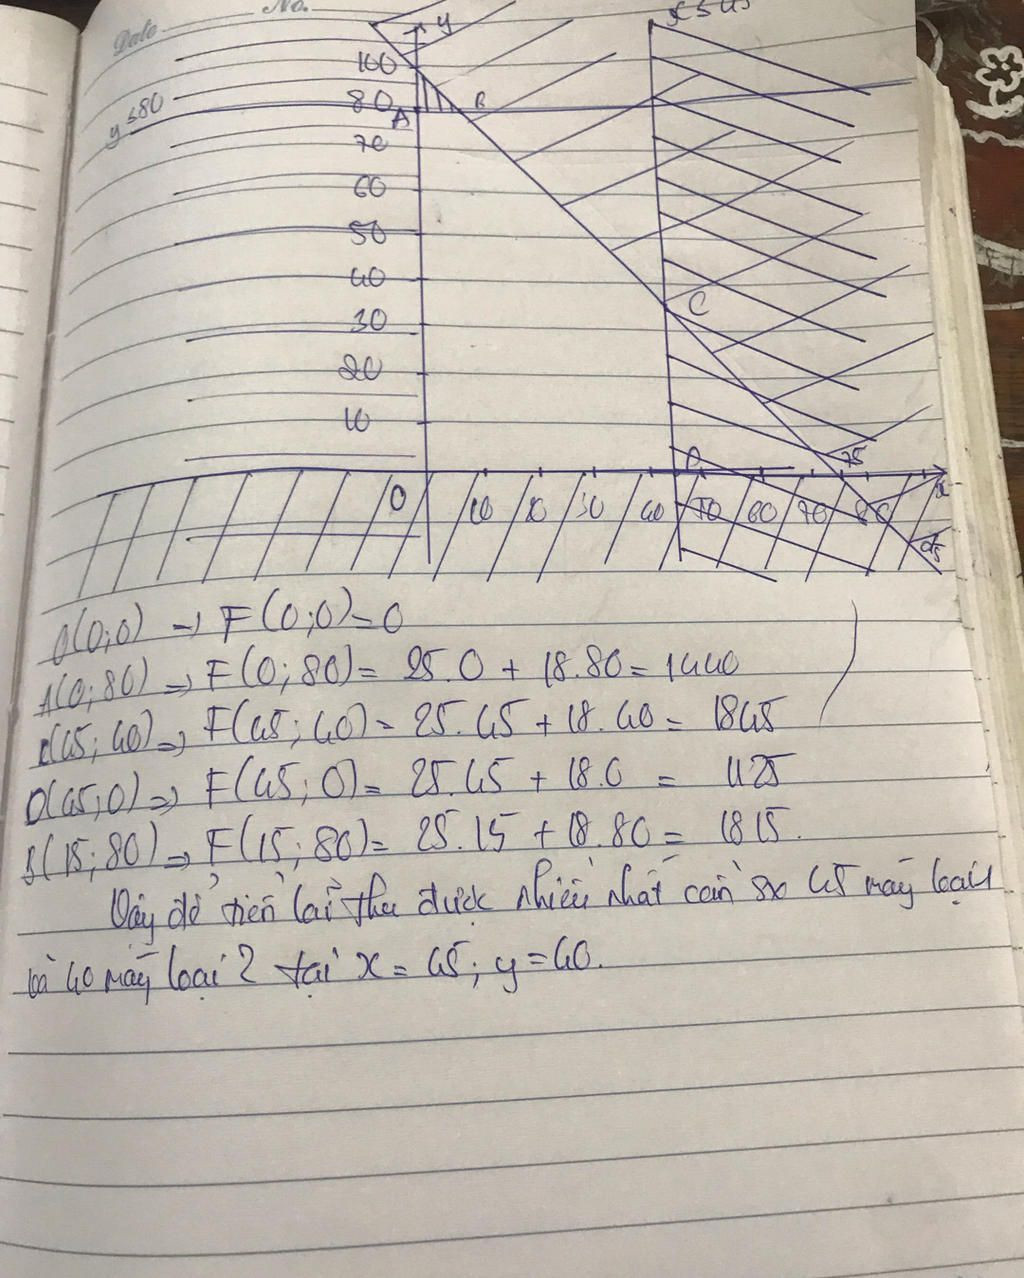 Date No.
x ≤ 45
y
100
y ≤ 80
80
A
B
70
60
50
40
30
C
20
10
75
D
O
10
20
30
40
50
60
70
80
x
d5
O(0;0) => F(0;0) = 0
A(0;80) => F(0;80) = 25.0 + 18.80 = 1440
C(45;40) => F(45;40) = 25.45 + 18.40 = 1845
D(45;0) => F(45;0) = 25.45 + 18.0 = 1125
B(15;80) => F(15;80) = 25.15 + 18.80 = 1815.
Vậy để tiền lãi thu được nhiều nhất cần sx 45 máy loại 1
và 40 máy loại 2 tại x = 45; y = 40.